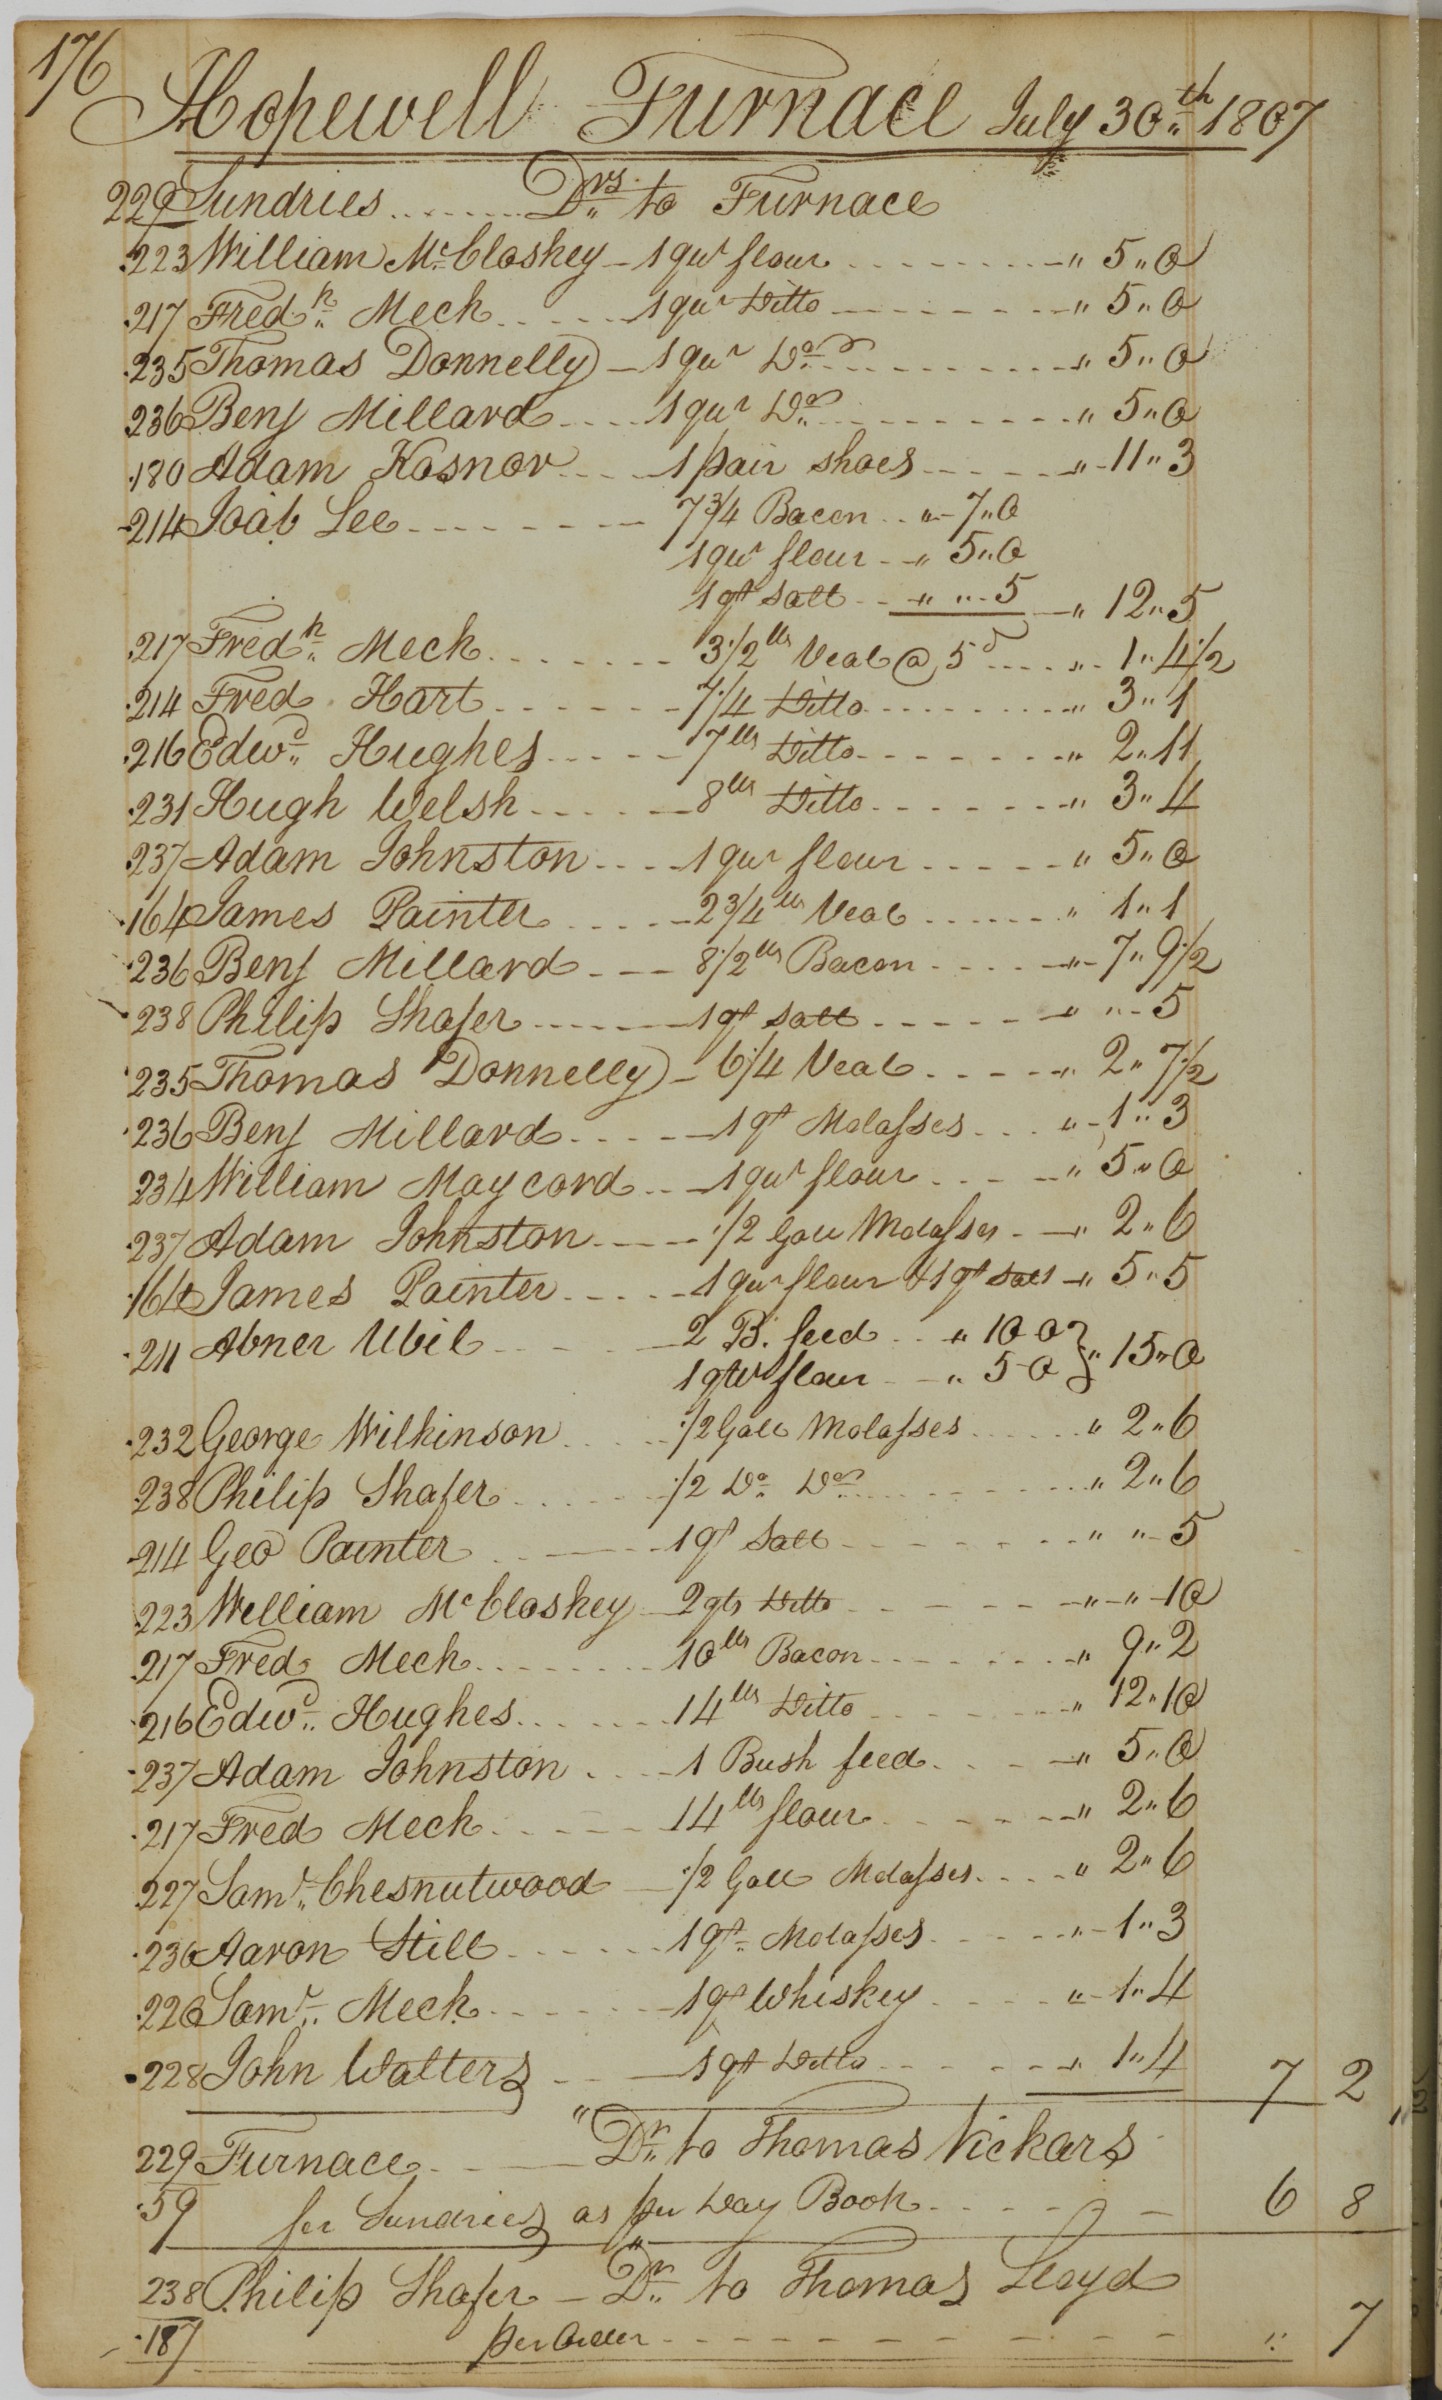 176
Hopewell Furnace July 30th 1807
229 Sundries Drs to Furnace
223 William McCloskey 1 qur flour " 5 " 0
217 Fredk Meck 1 qur Ditto " 5 " 0
235 Thomas Donnelly 1 qur Do " 5 " 0
236 Benj Millard 1 qur Do " 5 " 0
180 Adam Kosnor 1 pair shoes " 11 " 3
214 Joab Lee 7 3/4 Bacon " 7 " 0
1 qur flour " 5 " 0
1 qt Salt " " 5 " 12 " 5
217 Fredk Meck 3 1/2 lbs Veal @ 5d " 1 " 4 1/2
214 Fred Hart 7 1/4 Ditto " 3 " 1
216 Edwd Hughes 7 lbs Ditto " 2 " 11
231 Hugh Welsh 8 lbs Ditto " 3 " 4
237 Adam Johnston 1 qur flour " 5 " 0
164 James Painter 2 3/4 lbs Veal " 1 " 1
236 Benj Millard 8 1/2 lbs Bacon " 7 " 9 1/2
238 Philip Shafer 1 qt Salt " " 5
235 Thomas Donnelly 6 1/4 Veal " 2 " 7 1/2
236 Benj Millard 1 qt Molasses " 1 " 3
234 William Maycord 1 qur flour " 5 " 0
237 Adam Johnston 1/2 Gall Molasses " 2 " 6
164 James Painter 1 qur flour & 1 qt Salt " 5 " 5
211 Abner Ubil 2 B. feed " 10 0 } " 15 " 0
1 qtur flour " 5 0
232 George Wilkinson 1/2 Gall Molasses " 2 " 6
238 Philip Shafer 1/2 Do Do " 2 " 6
214 Geo Painter 1 qt Salt " " 5
223 William McCloskey 2 qts Ditto " " 10
217 Fred Meck 10 lbs Bacon " 9 " 2
216 Edwd Hughes 14 lbs Ditto " 12 " 10
237 Adam Johnston 1 Bush feed " 5 " 0
217 Fred Meck 14 lbs flour " 2 " 6
227 Saml Chesnutwood 1/2 Gall Molasses " 2 " 6
236 Aaron Still 1 qt Molasses " 1 " 3
226 Saml Meck 1 qt Whiskey " 1 " 4
228 John Walters 1 qt Ditto " 1 " 4 7 2
229 Furnace Dr to Thomas Vickars
59 for Sundries as per Day Book 6 8
238 Philip Shafer Dr to Thomas Lloyd
187 per Order " 7